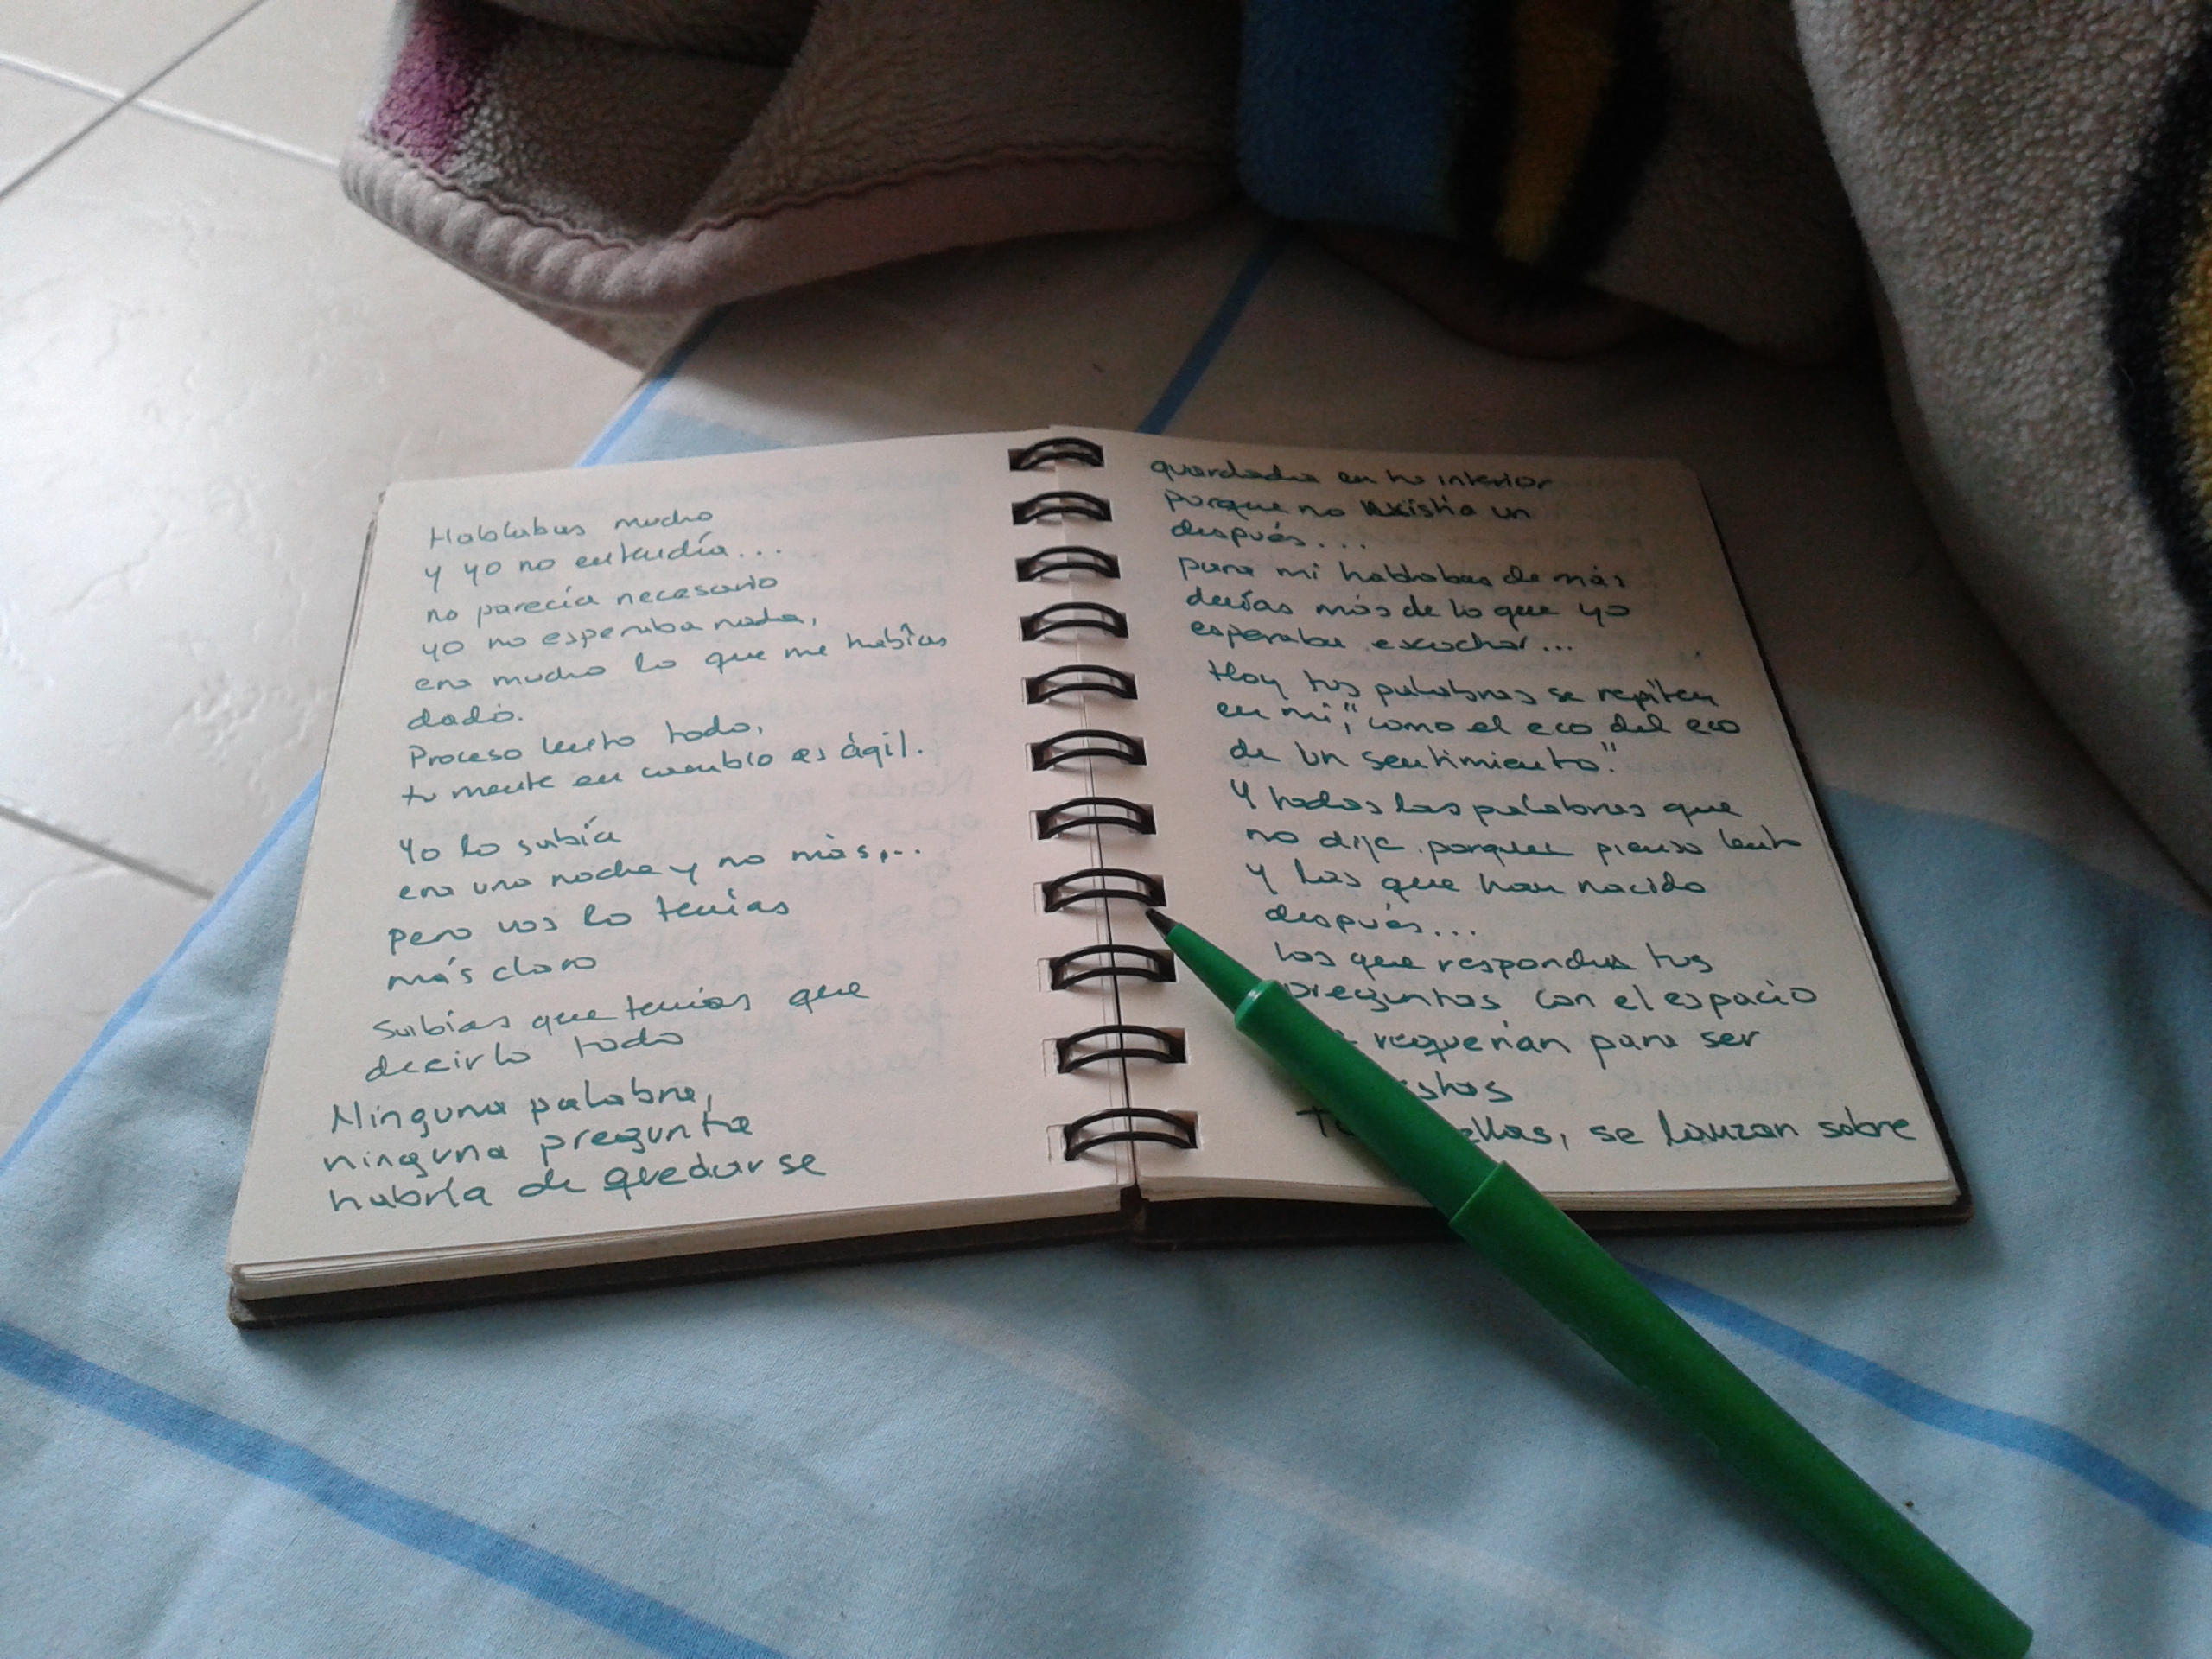 Hablabas mucho
y yo no entendía...
no parecía necesario
yo no esperaba nada,
era mucho lo que me habías
dado.
Proceso lento todo,
tu mente en cambio es ágil.
Yo lo sabía
era una noche y no más,...
pero vos lo tenías
más claro
Sabías que tenías que
decirlo todo
Ninguna palabra,
ninguna pregunta
habría de quedarse
guardada en tu interior
porque no existía un
después...
para mi hablabas de más
decías más de lo que yo
esperaba escuchar...
Hoy tus palabras se repiten
en mi, "como el eco del eco
de un sentimiento."
Y todas las palabras que
no dije porque pienso lento
Y las que han nacido
después...
Las que responden tus
preguntas con el espacio
requerían para ser
ellas, se lanzan sobre